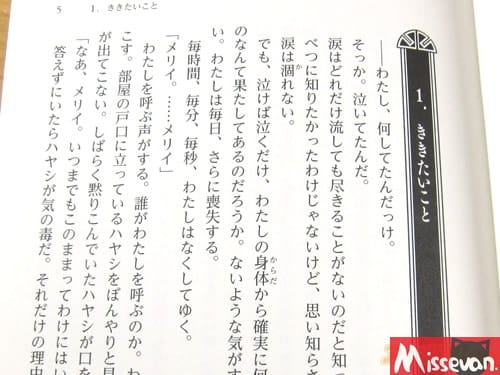 5 1. ききたいこと
1. ききたいこと
——わたし、何してたんだっけ。
そっか。泣いてたんだ。
涙はどれだけ流しても尽きることがないのだと知っ
べつに知りたかったわけじゃないけど、思い知らさ
涙は涸れない。
でも、泣けば泣くだけ、わたしの身体から確実に何
のなんて果たしてあるのだろうか。ないような気がす
い。わたしは毎日、さらに喪失する。
毎時間、毎分、毎秒、わたしはなくしてゆく。
「メリイ。……メリイ」
わたしを呼ぶ声がする。誰がわたしを呼ぶのか。わ
こす。部屋の戸口に立っているハヤシをぼんやりと見
が出てこない。しばらく黙りこんでいたハヤシが口を
「なあ、メリイ。いつまでもこのままってわけにはい
答えずにいたらハヤシが気の毒だ。それだけの理由
Missevan.